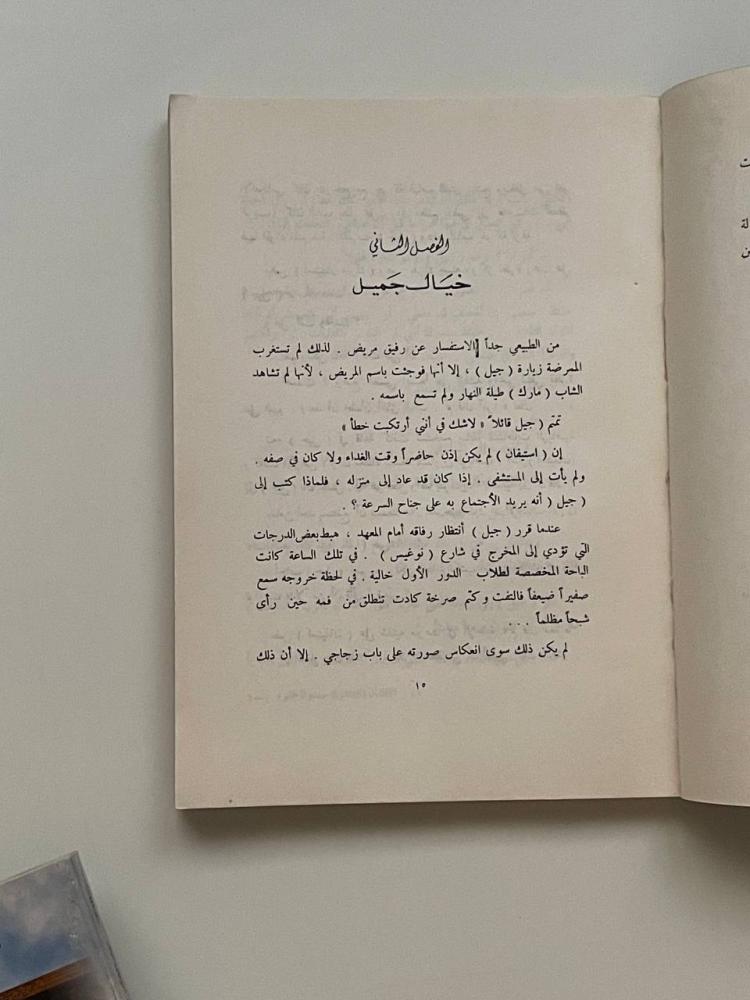 الفصل الثاني
خيال جميل
من الطبيعي جداً الاستفسار عن رفيق مريض . لذلك لم تستغرب
الممرضة زيارة ( جيل ) ، إلا أنها فوجئت باسم المريض ، لأنها لم تشاهد
الشاب ( مارك ) طيلة النهار ولم تسمع باسمه .
تمتم ( جيل قائلاً « لاشك في أنني أرتكبت خطأ »
إن ( استيفان ) لم يكن إذن حاضراً وقت الغداء ولا كان في صفه .
ولم يأت إلى المستشفى . إذا كان قد عاد إلى منزله ، فلماذا كتب إلى
( جيل ) أنه يريد الأجتماع به على جناح السرعة ؟ .
عندما قرر ( جيل ) أنتظار رفاقه أمام المعهد ، هبط بعض الدرجات
التي تؤدي إلى المخرج في شارع ( نوغيس ) . في تلك الساعة كانت
الباحة المخصصة لطلاب الدور الأول خالية . في لحظة خروجه سمع
صفيراً ضعيفاً فالتفت وكتم صرخة كادت تنطلق من فمه حين رأى
شبحاً مظلماً . . .
لم يكن ذلك سوى انعكاس صورته على باب زجاجي . إلا أن ذلك
١٥
ت
لة
ن